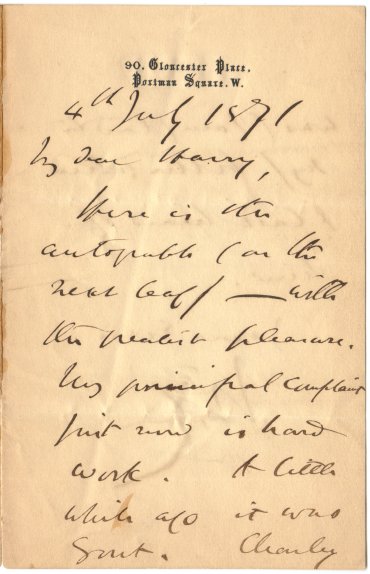 90, Gloucester Place,
Portman Square. W.
4th July 1871
My dear Harry,
Here is the
autograph (on the
next leaf) — with
the greatest pleasure.
My principal complaint
just now is hard
work. A little
while ago it was
Gout. Charley